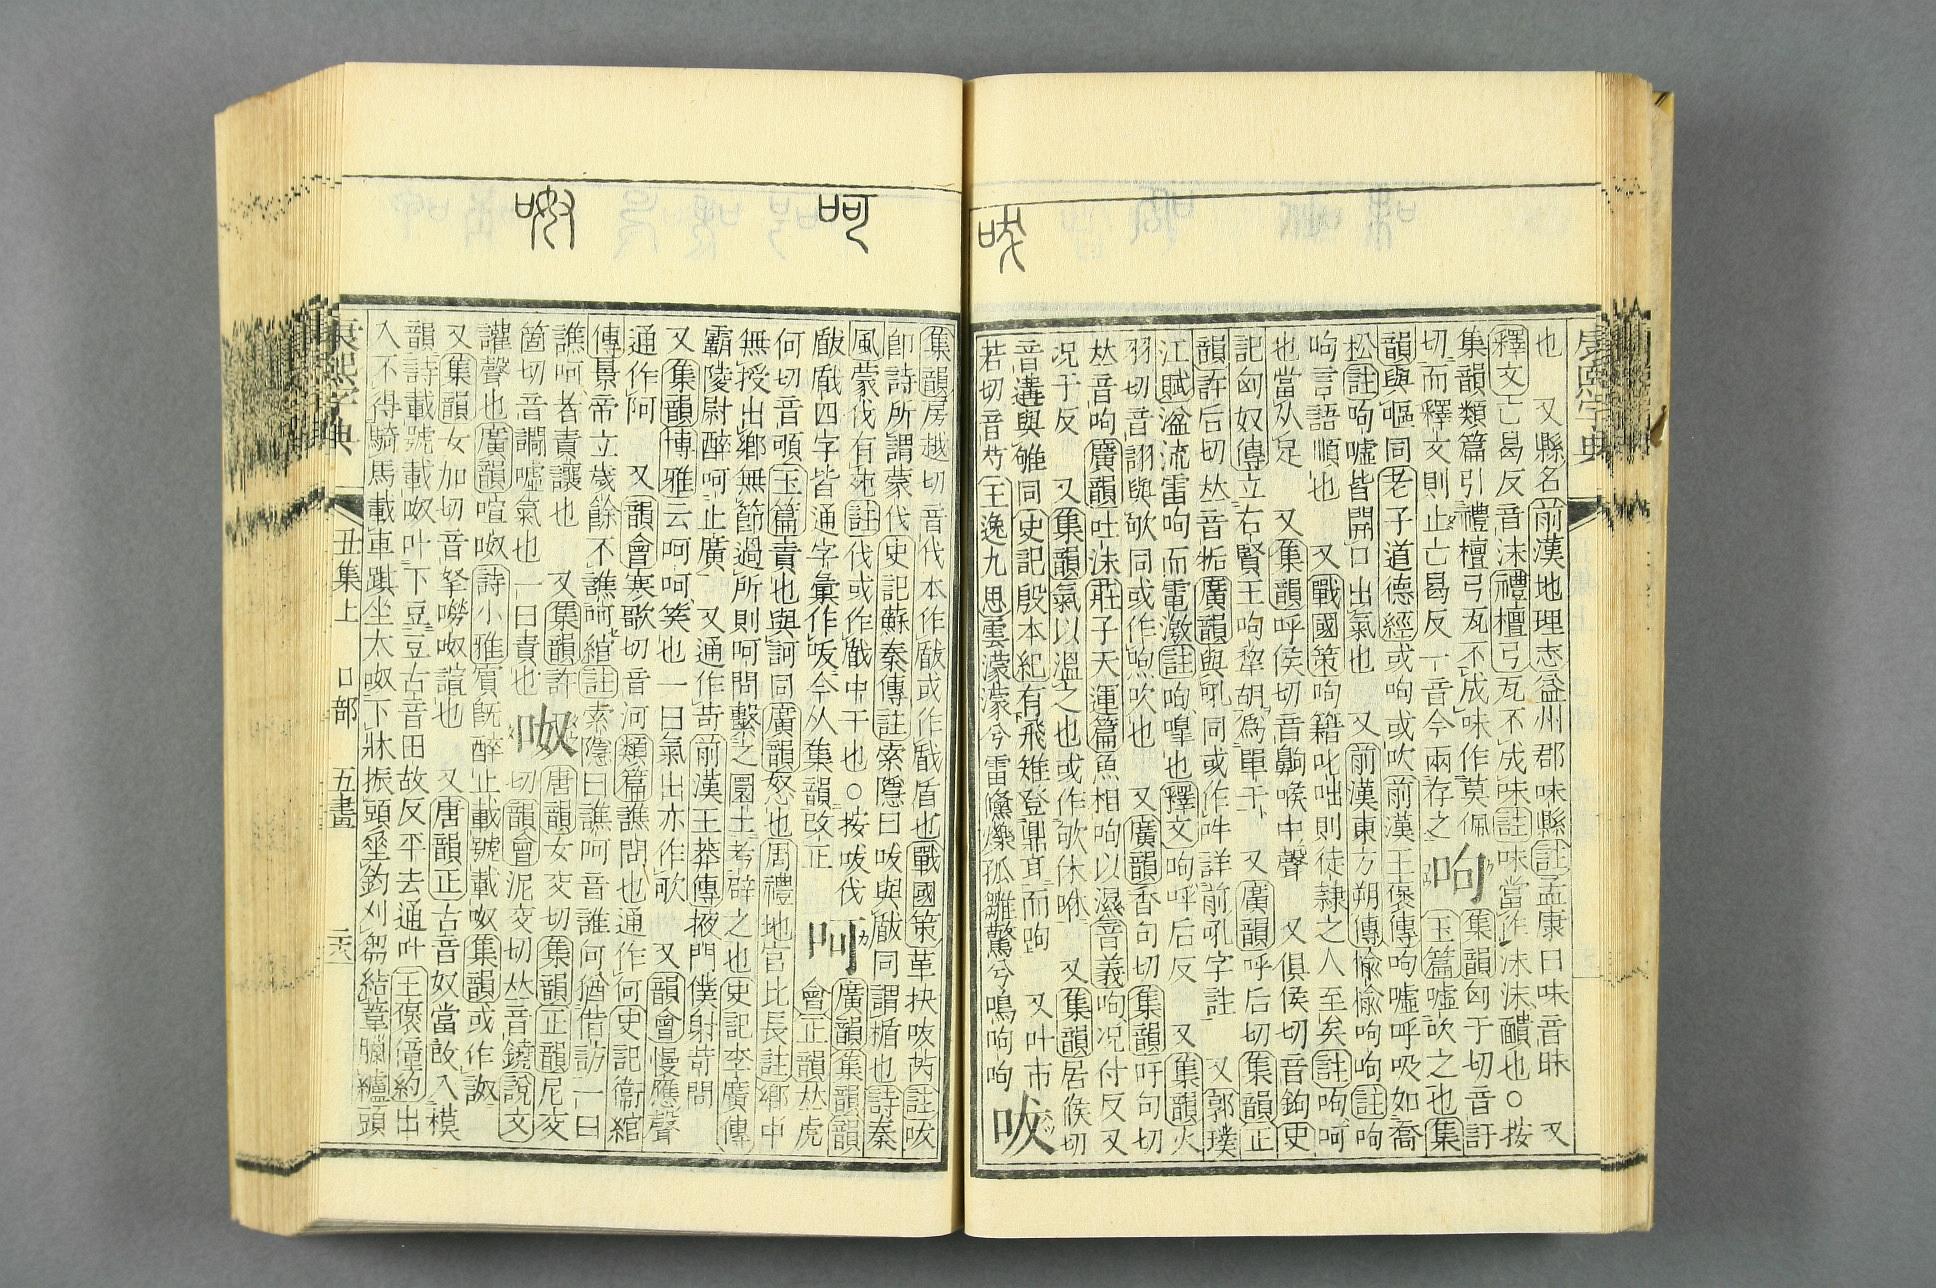 也　又縣名前漢地理志益州郡味縣註孟康曰味音昧　又
釋文亡曷反音沫禮檀弓瓦不成味註味當作沬沬靧也○按
集韻類篇引禮檀弓瓦不成味作莫佩
切而釋文則止亡曷反一音今兩存之
呴
集韻匈于切音訏
玉篇噓吹之也集
韻與嘔同老子道德經或呴或吹前漢王褒傳呴噓呼吸如喬
松註呴噓皆開口出氣也　又前漢東方朔傳愉愉呴呴註呴
呴言語順也　又戰國策呴籍叱咄則徒隸之人至矣註呴呵
也當从足　又集韻呼侯切音齁喉中聲　又俱侯切音鉤史
記匈奴傳立右賢王呴犂胡爲單于　又廣韻呼后切集韻正
韻許后切𠀤音㖃廣韻與吼同或作吽詳前吼字註　又郭璞
江賦溢流雷呴而電激註呴嘷也釋文呴呼后反　又集韻火
羽切音詡與欨同或作喣吹也　又廣韻香句切集韻吁句切
𠀤音昫廣韻吐沫莊子天運篇魚相呴以濕音義呴况付反又
况于反　又集韻氣以溫之也或作欨休咻　又集韻居候切
音遘與雊同史記殷本紀有飛雉登鼎耳而呴　又叶市
若切音芍王逸九思雲濛濛兮雷儵爍孤雛驚兮鳴呴呴
咙
集韻房越切音伐本作瞂或作戙盾也戰國策革抉咙芮註咙
卽詩所謂蒙伐史記蘇秦傳註索隱曰咙與瞂同謂楯也詩秦
風蒙伐有苑註伐或作戙中干也○按咙伐
瞂戙四字皆通字彙作咙今从集韻改正
呵
廣韻集韻韻
會正韻𠀤虎
何切音訶玉篇責也與訶同廣韻怒也周禮地官比長註鄉中
無授出鄉無節過所則呵問繫之圜土考辟之也史記李廣傳
霸陵尉醉呵止廣　又通作苛前漢王莽傳掖門僕射苛問
又集韻博雅云呵呵笑也一曰氣出亦作欨　又韻會慢應聲
通作阿　又韻會寒歌切音河類篇譙問也通作何史記衞綰
傳景帝立歲餘不譙呵綰註索隱曰譙呵音誰何猶借訪一曰
譙呵者責讓也　又集韻許
箇切音謌噓氣也一曰責也
呶
唐韻女交切集韻正韻尼交
切韻會泥交切𠀤音鐃說文
讙聲也廣韻喧呶詩小雅賔旣醉止載號載呶集韻或作詉
又集韻女加切音拏嘮呶諠也　又唐韻正古音奴當改入模
韻詩載號載呶叶下豆豆古音田故反平去通叶王褒僮約出
入不得騎馬載車踑坐大呶下牀振頭垂鈎刈芻結葦臘纑頭
康熙字典
丑集上　口部　五畫
康熙字典
咙
呵
呶